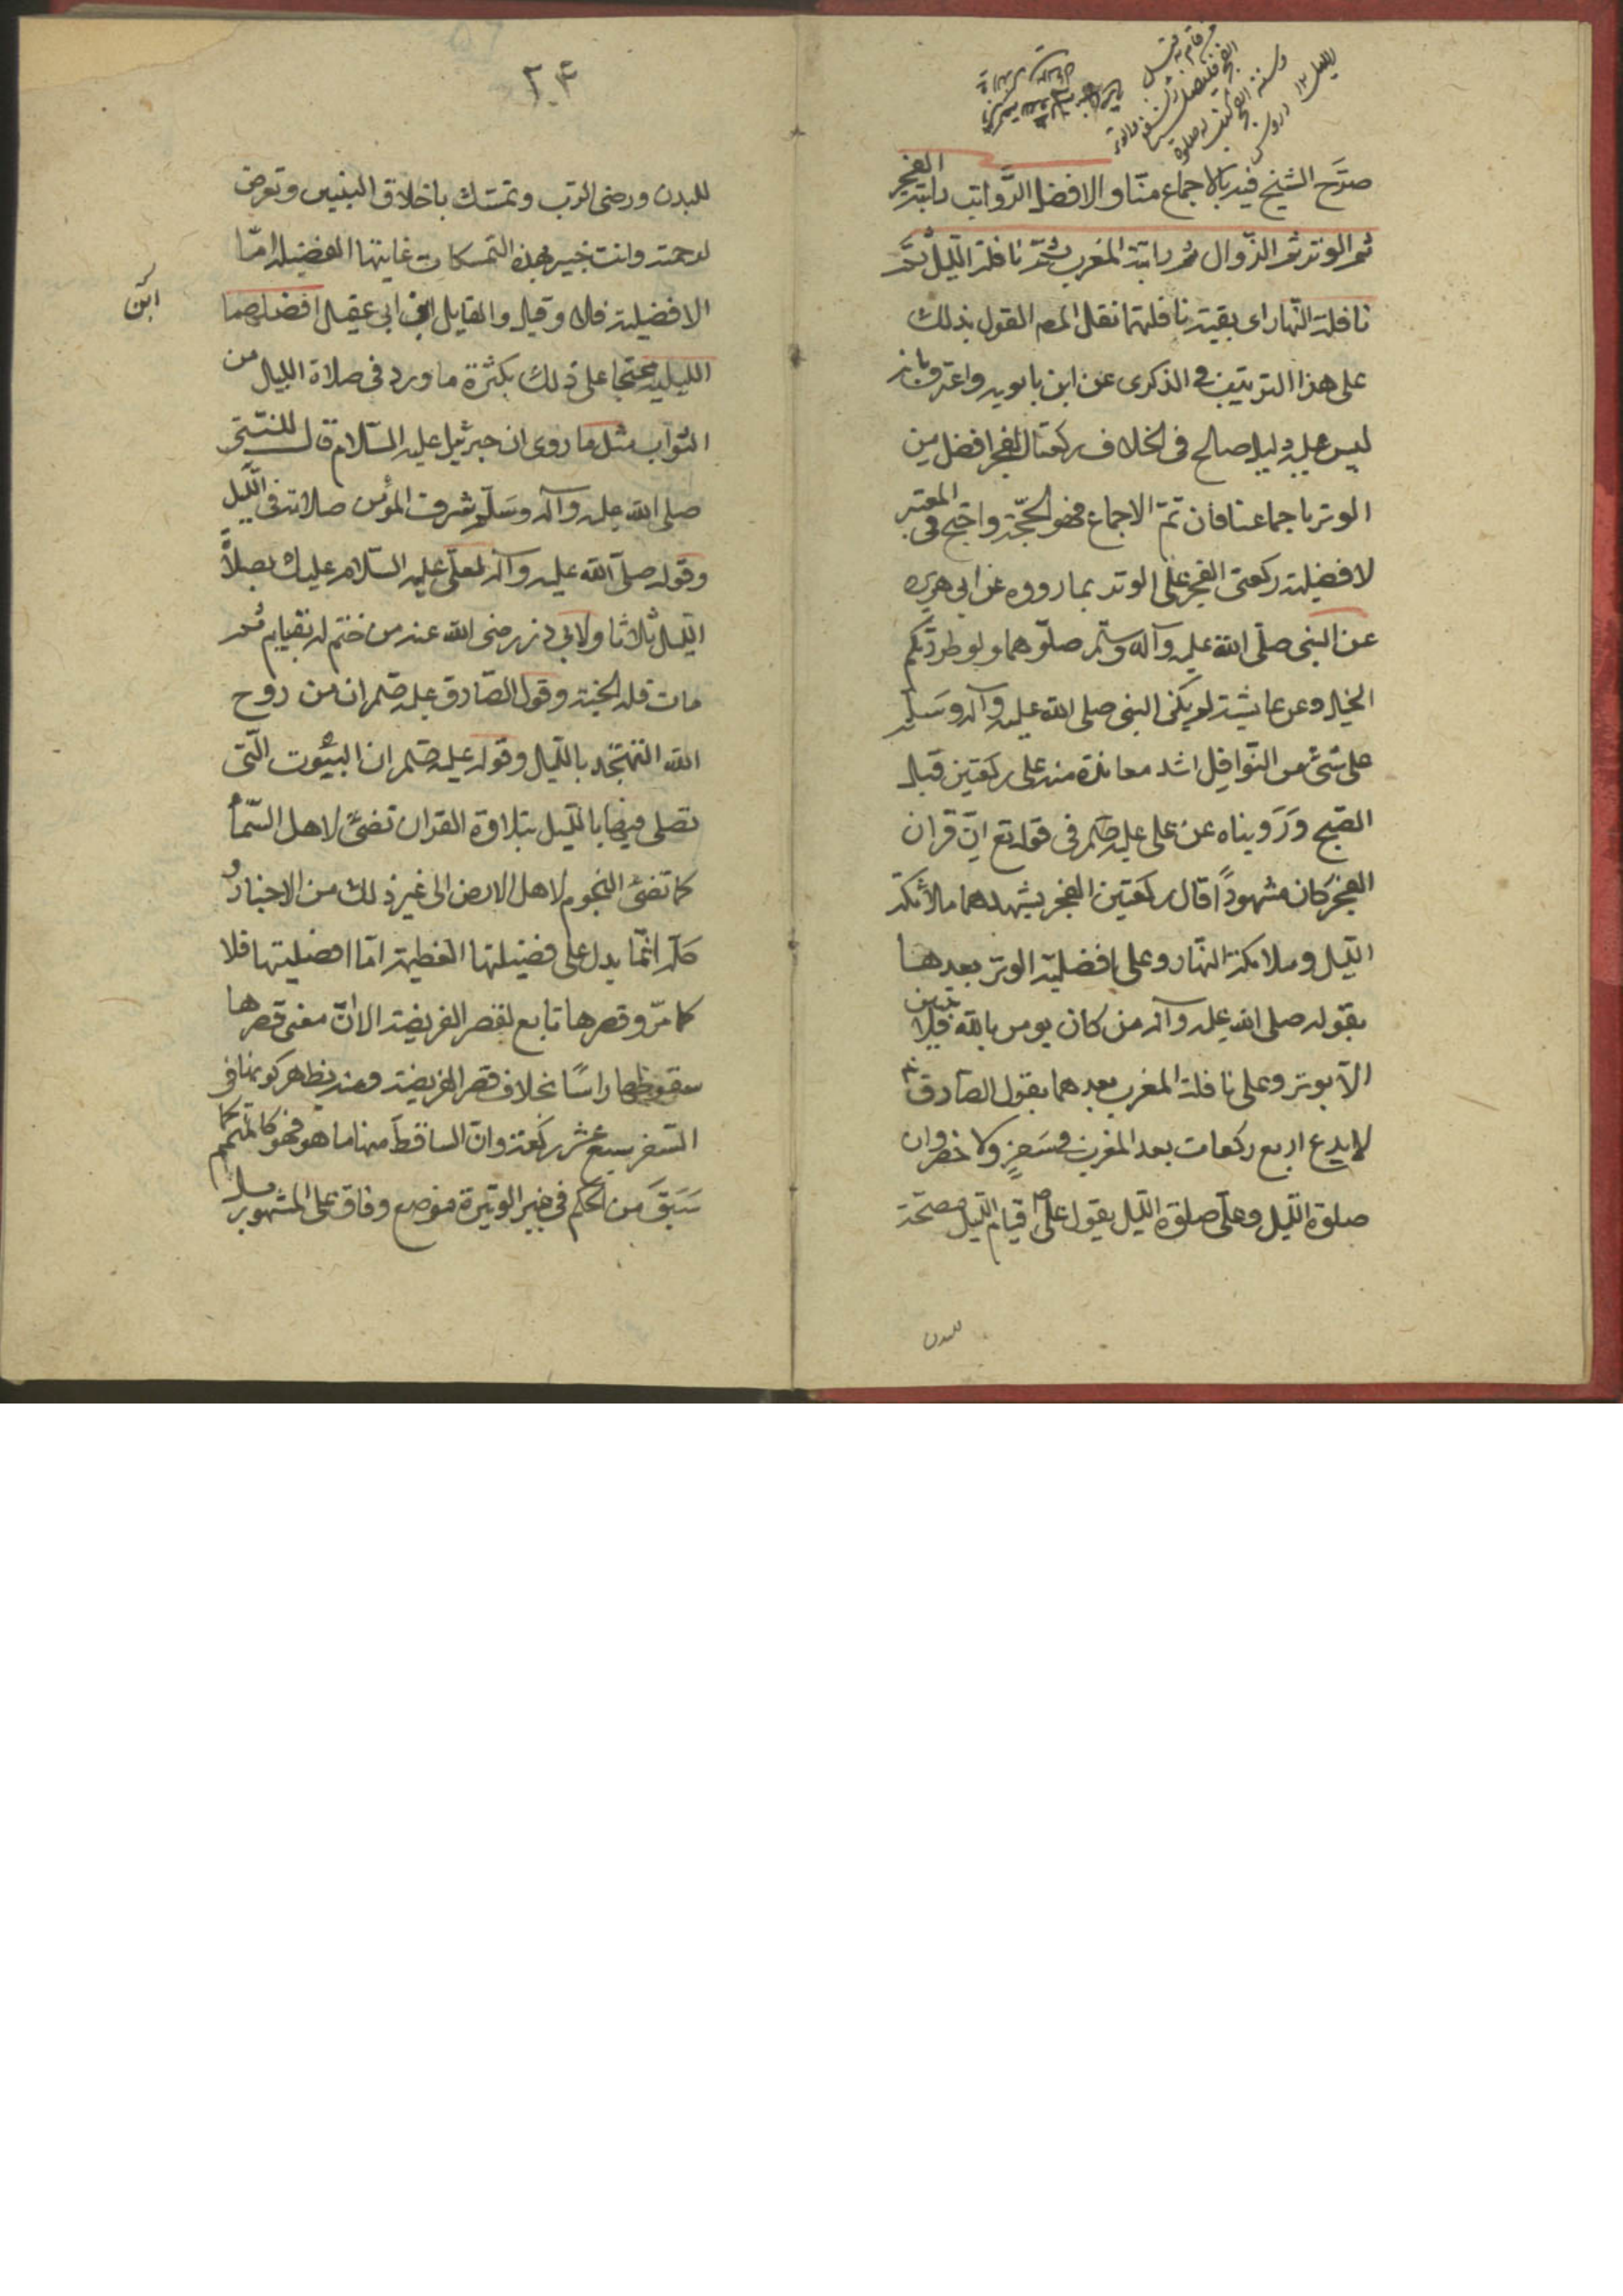 صرّح الشيخ فيه بالاجماع منّا و الافضل الرّواتب راتبة الفجر
ثم الوتر ثم الزوال ثم راتبة المغرب ثم نافلة اللّيل ثم
نافلة النّهار اى بقية نافلتهما نقل المصه القول بذلك
على هذا الترتيب فى الذكرى عن ابن بابويه واعترف بانه
ليس عليه دليل صالح فى الخلاف ركعتا الفجر افضل من
الوتر باجماعنا فان تمّ الاجماع فهو الحجّة واحتج فى المعتبر
لافضلية ركعتى الفجر على الوتر بما رووه عن ابى هريره
عن النبى صلّى الله عليه وآله وسلّم صلّوهما ولو طردتكم
الخيل وعن عايشة لم يكن النبى صلى الله عليه وآله وسَلّم
على شئ من النّوافل اشد معاهدة منه على ركعتين قبل
الصّبح ورَوَيناه عن على عليه السلم فى قوله تع انّ قران
الفجر كان مشهودًا قال ركعتين الفجر يشهدهما ملائكة
اللّيل وملائكة النّهار وعلى افضلية الوتر بعدهما
بقوله صلى الله عليه وآله من كان يومن بالله فلا يبيتن
الّا بوتر وعلى نافلة المغرب بعدهما بقول الصّادق
لا يدع اربع ركعات بعد المغرب فى سَفرٍ ولا حضر وان
صلوة اللّيل وعلى صلوة اللّيل بقول على قيام اللّيل مصحّة
للبدن
٢٤
للبدن ورضى الرّب وتمسّك باخلاق النبيين وتعرض
لرحمته وانت خبير بهذه التمسكات غايتها الفضيلة امّا
الافضلية فلا وقيل والقايل ابن ابى عقيل افضلهما
ابن
الليلية محتجا على ذلك بكثرة ما ورد فى صلاة الليل من
الثواب مثل ما روى ان جبرئيل عليه السّلام قال للنبىّ
صلى الله عليه وآله وسَلّم شرف المؤمن صلاته فى اللّيل
وقوله صلّى الله عليه وآله لعلّى عليه السّلام عليك بصلاة
اللّيل ثلاثا ولابى ذر رضى الله عنه من ختم له بقيام ثم
مات فله الجنة وقول الصّادق عليه السلم ان من روح
الله التهجّد باللّيل وقوله عليه السلم ان البيُوت الّتى
تصلى فيها باللّيل بتلاوة القران تضئ لاهل السّماء
كما تضئ النجوم لاهل الارض الى غير ذلك من الاخبار و
كلّه انّما يدل على فضيلتها العظيمة امّا افضليتها فلا
كما مرّ وقصرها تابع لقصر الفريضة الا انّ معنى قصرها
سقوطها راسًا بخلاف قصر الفريضة ومنه يظهر كونها فى
السّفر سبع عشر ركعة وانّ الساقط منها ما هو فهو كالمتمم لما
سَبَقَ من الحكم فى غير الوتيرة موضع وفاق على المشهور بل